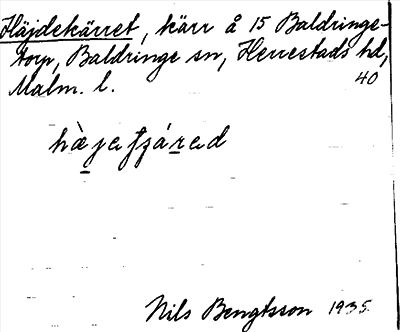 Häjdekärret, kärr å 15 Baldringe-
torp, Baldringe sn, Herrestads hd,
Malm. l. 40
Nils Bengtsson 1935.